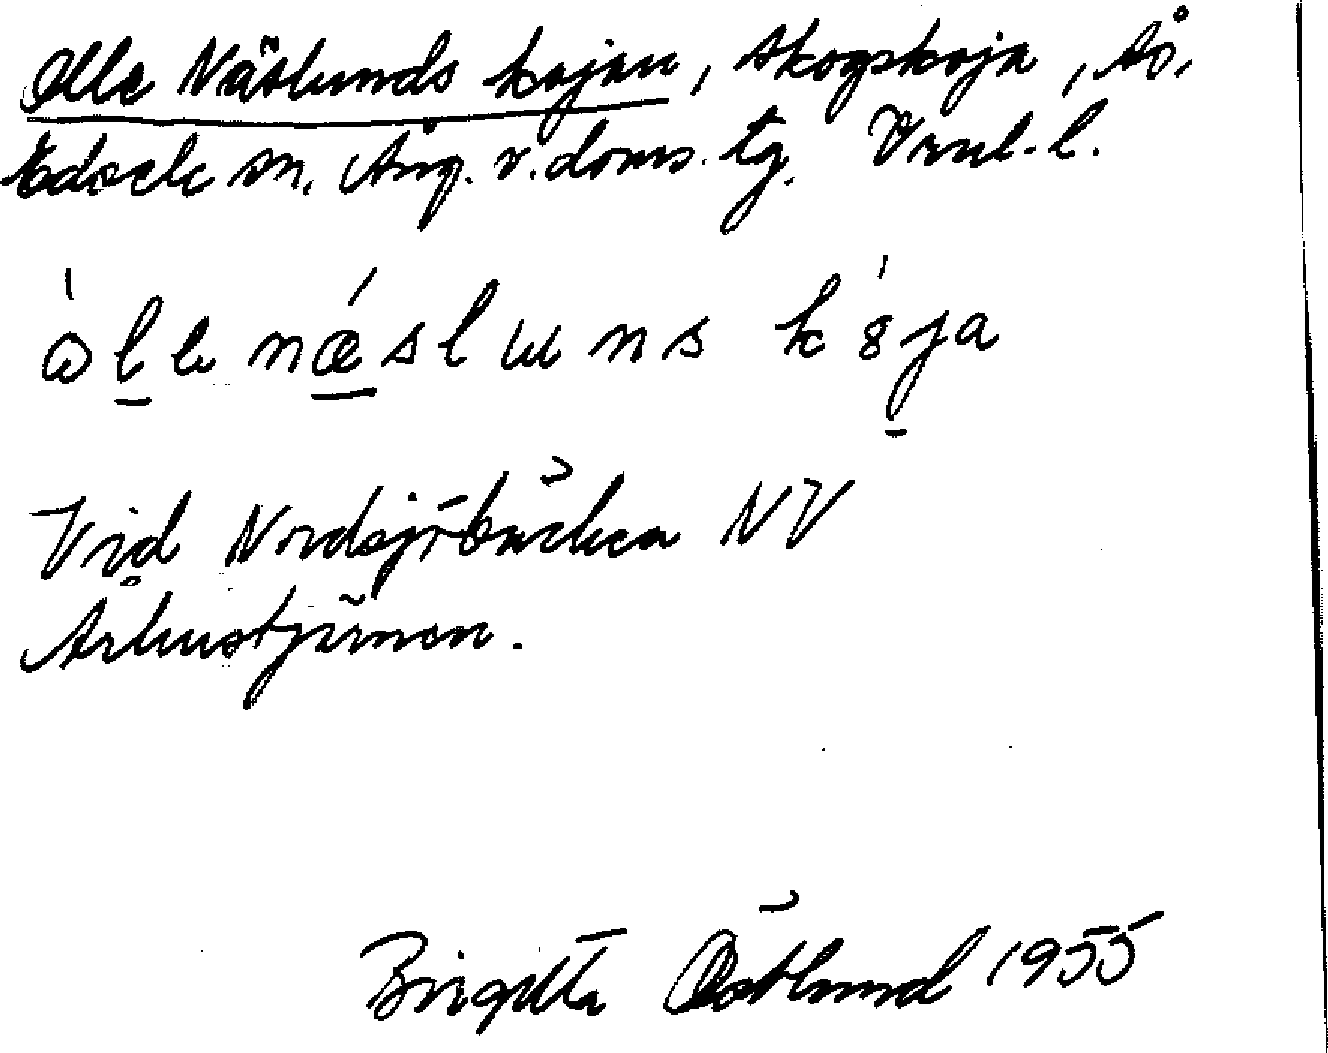 Olle Näslunds kojan, skogskoja, Å,
Edsele sn. Ång. v. doms. tg. Vnl. l.
òle næsluns k8ja
Vid Nordsjöbäcken NV
Århustjärnen.
Birgitta Östlund 1955